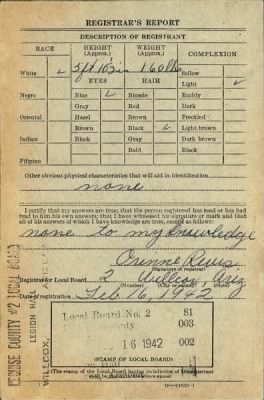 REGISTRAR'S REPORT
DESCRIPTION OF REGISTRANT
RACE HEIGHT (Approx.) WEIGHT (Approx.) COMPLEXION
White ✓ 5 ft 10½ in 160 lbs Sallow
EYES HAIR Light ✓
Negro Blue ✓ Blonde Ruddy
Gray Red Dark
Oriental Hazel Brown Freckled
Brown Black ✓ Light brown
Indian Black Gray Dark brown
Bald Black
Filipino
Other obvious physical characteristics that will aid in identification
none
I certify that my answers are true; that the person registered has read or has had
read to him his own answers; that I have witnessed his signature or mark and that
all of his answers of which I have knowledge are true, except as follows:
none to my knowledge
(Signature of registrar)
Registrar for Local Board 2 Willcox, Ariz
Date of registration Feb 16, 1942
Local Board No. 2 81
003
16 1942 002
(STAMP OF LOCAL BOARD)
(The stamp of the Local Board having jurisdiction of the registrant
COCHISE COUNTY #2 LOCAL BOARD
LEGION HALL
WILLCOX,